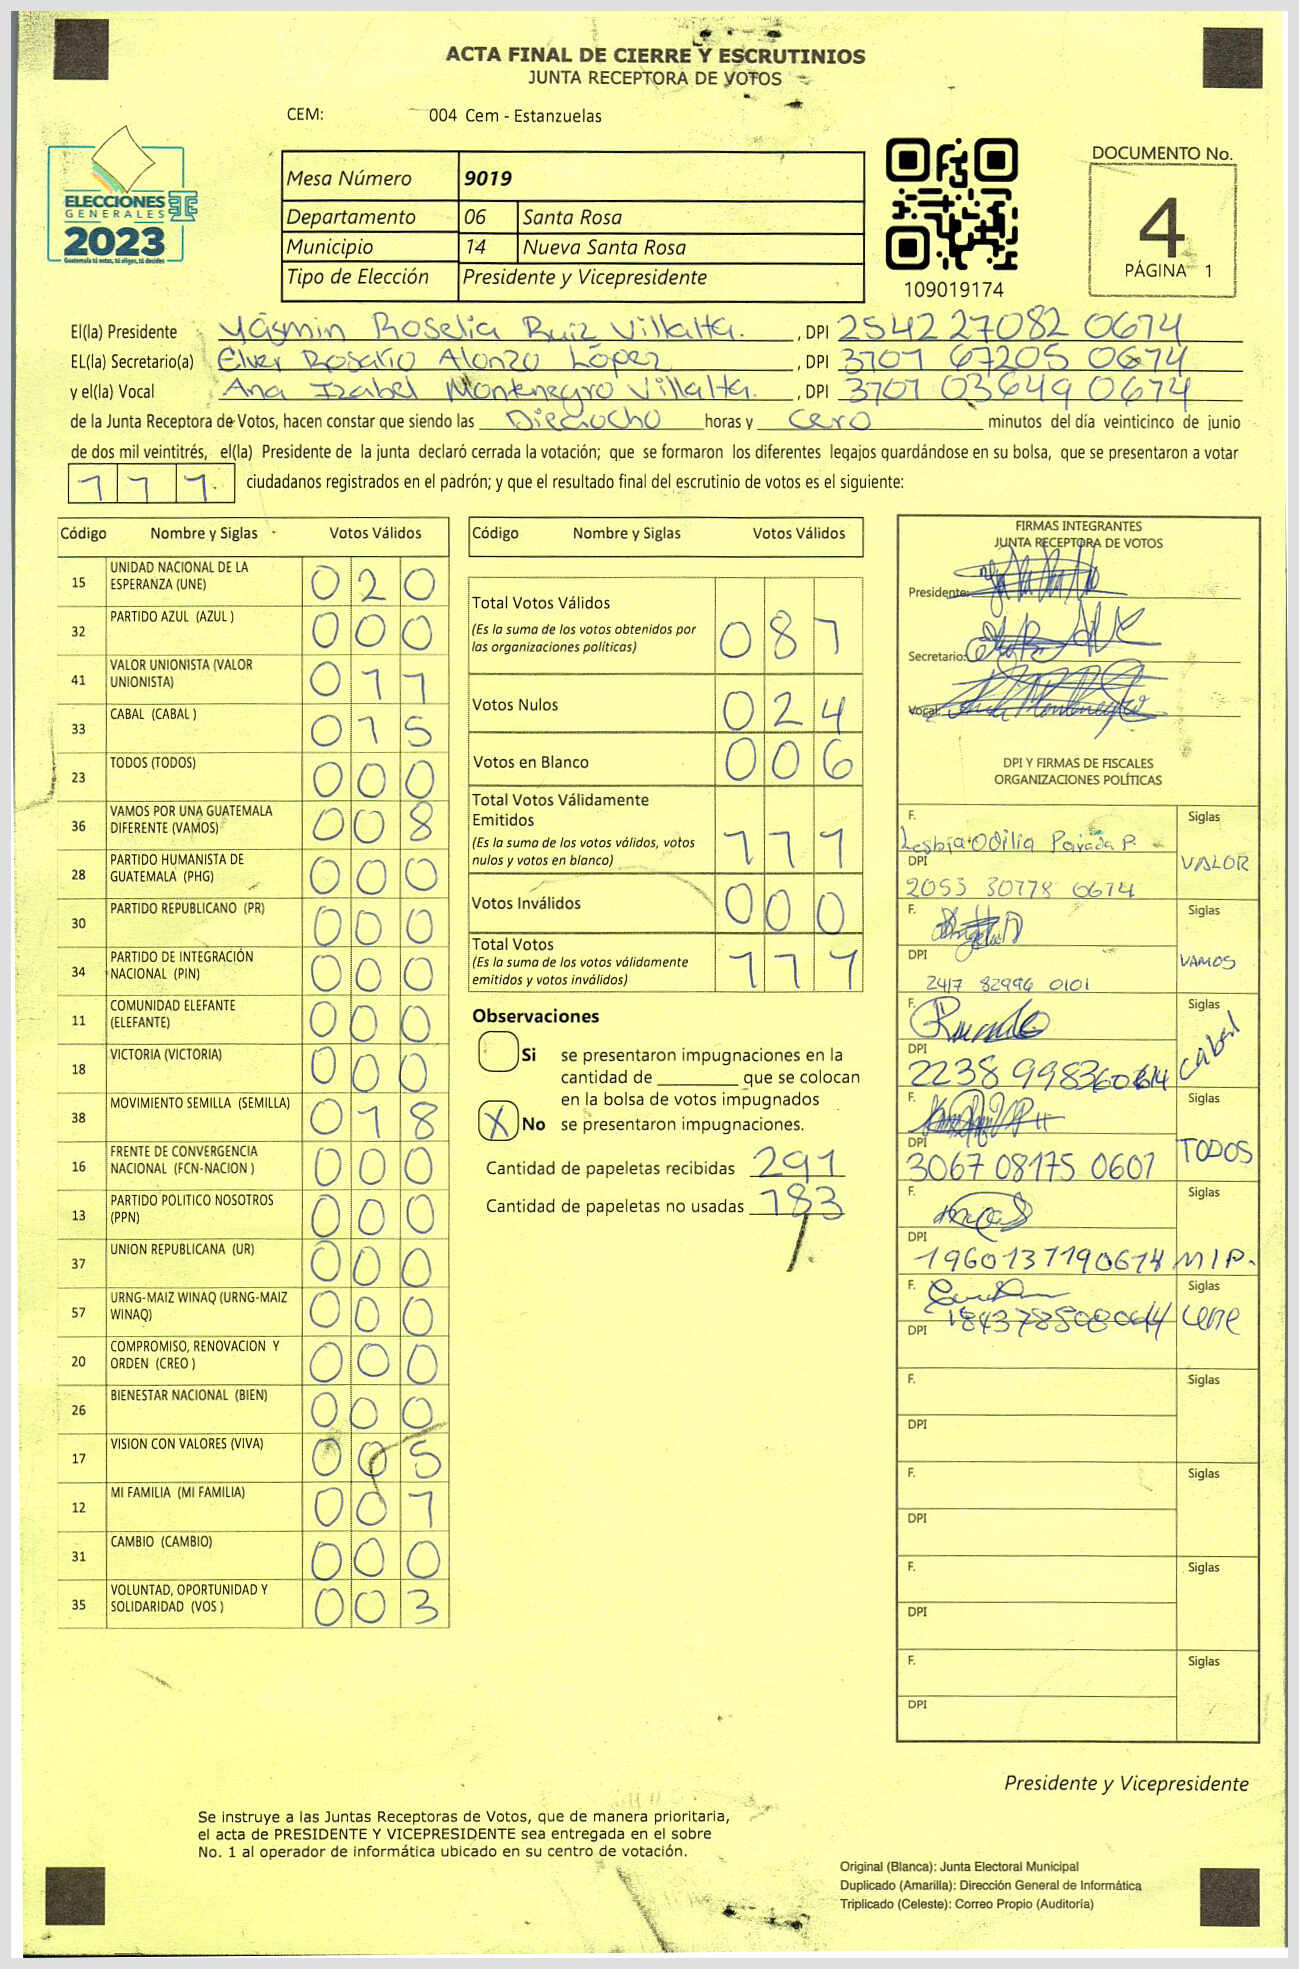 ACTA FINAL DE CIERRE Y ESCRUTINIOS
JUNTA RECEPTORA DE VOTOS
CEM: 004 Cem - Estanzuelas
ELECCIONES
GENERALES
2023
Guatemala tú votas, tú eliges, tú decides
Mesa Número 9019
Departamento 06 Santa Rosa
Municipio 14 Nueva Santa Rosa
Tipo de Elección Presidente y Vicepresidente
109019174
DOCUMENTO No.
4
PÁGINA 1
El(la) Presidente Yásmin Roselia Ruiz Villalta. , DPI 2542 27082 0614
EL(la) Secretario(a) Elver Rosario Alonzo López , DPI 67205 0614
y el(la) Vocal Ana Izabel Montenegro Villalta. , DPI 03649 0614
de la Junta Receptora de Votos, hacen constar que siendo las Dieciocho horas y cero minutos del día veinticinco de junio
de dos mil veintitrés, el(la) Presidente de la junta declaró cerrada la votación; que se formaron los diferentes legajos guardándose en su bolsa, que se presentaron a votar
111 ciudadanos registrados en el padrón; y que el resultado final del escrutinio de votos es el siguiente:
Código Nombre y Siglas Votos Válidos
15 UNIDAD NACIONAL DE LA ESPERANZA (UNE) 020
32 PARTIDO AZUL (AZUL ) 000
41 VALOR UNIONISTA (VALOR UNIONISTA) 011
33 CABAL (CABAL ) 015
23 TODOS (TODOS) 000
36 VAMOS POR UNA GUATEMALA DIFERENTE (VAMOS) 008
28 PARTIDO HUMANISTA DE GUATEMALA (PHG) 000
30 PARTIDO REPUBLICANO (PR) 000
34 PARTIDO DE INTEGRACIÓN NACIONAL (PIN) 000
11 COMUNIDAD ELEFANTE (ELEFANTE) 000
18 VICTORIA (VICTORIA) 000
38 MOVIMIENTO SEMILLA (SEMILLA) 018
16 FRENTE DE CONVERGENCIA NACIONAL (FCN-NACION ) 000
13 PARTIDO POLITICO NOSOTROS (PPN) 000
37 UNION REPUBLICANA (UR) 000
57 URNG-MAIZ WINAQ (URNG-MAIZ WINAQ) 000
20 COMPROMISO, RENOVACION Y ORDEN (CREO ) 000
26 BIENESTAR NACIONAL (BIEN) 000
17 VISION CON VALORES (VIVA) 005
12 MI FAMILIA (MI FAMILIA) 001
31 CAMBIO (CAMBIO) 000
35 VOLUNTAD, OPORTUNIDAD Y SOLIDARIDAD (VOS ) 003
Código Nombre y Siglas Votos Válidos
Total Votos Válidos
(Es la suma de los votos obtenidos por las organizaciones políticas) 081
Votos Nulos 024
Votos en Blanco 006
Total Votos Válidamente Emitidos
(Es la suma de los votos válidos, votos nulos y votos en blanco) 111
Votos Inválidos 000
Total Votos
(Es la suma de los votos válidamente emitidos y votos inválidos) 111
Observaciones
Si se presentaron impugnaciones en la
cantidad de ________ que se colocan
en la bolsa de votos impugnados
X No se presentaron impugnaciones.
Cantidad de papeletas recibidas 291
Cantidad de papeletas no usadas 183
FIRMAS INTEGRANTES
JUNTA RECEPTORA DE VOTOS
Presidente:
Secretario:
Vocal:
DPI Y FIRMAS DE FISCALES
ORGANIZACIONES POLÍTICAS
F. Lesbia Odilia Parada P. Siglas
DPI 2053 30778 0614 VALOR
F. Siglas
DPI 2417 82996 0101 VAMOS
F. Siglas
DPI 2238 99836 0614 Cabal
F. Siglas
DPI 3067 08175 0601 TODOS
F. Siglas
DPI 0614 MIP.
F. Siglas
DPI UNE
F. Siglas
DPI
F. Siglas
DPI
F. Siglas
DPI
F. Siglas
DPI
Presidente y Vicepresidente
Se instruye a las Juntas Receptoras de Votos, que de manera prioritaria,
el acta de PRESIDENTE Y VICEPRESIDENTE sea entregada en el sobre
No. 1 al operador de informática ubicado en su centro de votación.
Original (Blanca): Junta Electoral Municipal
Duplicado (Amarilla): Dirección General de Informática
Triplicado (Celeste): Correo Propio (Auditoría)